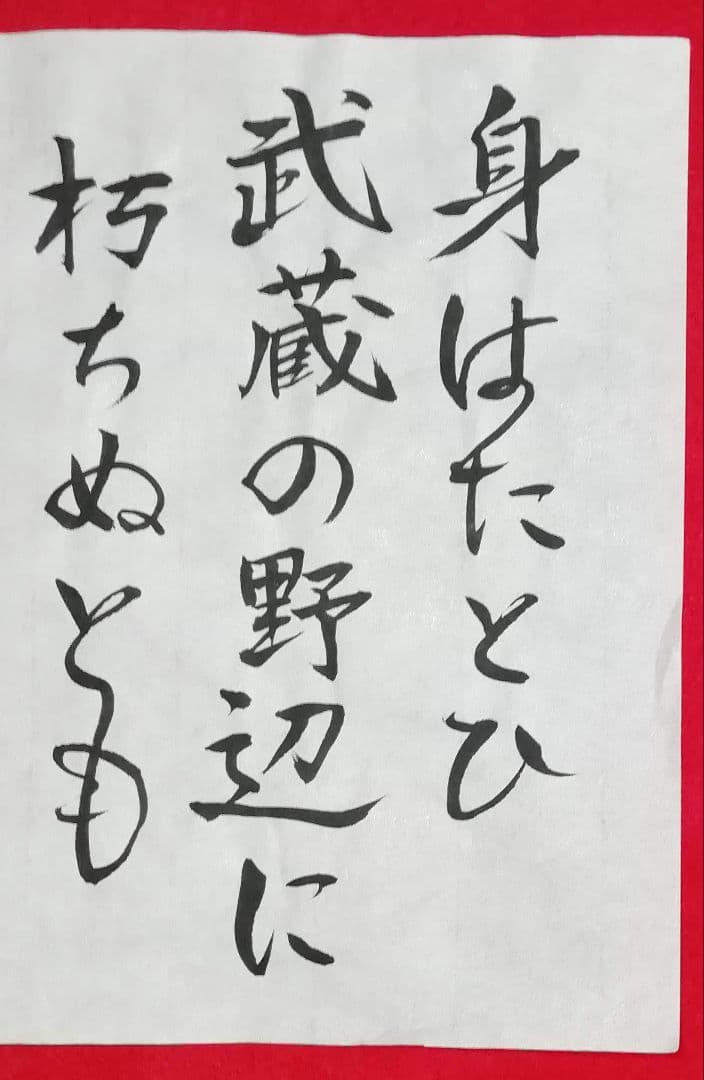 身はたとひ
武蔵の野辺に
朽ちぬとも